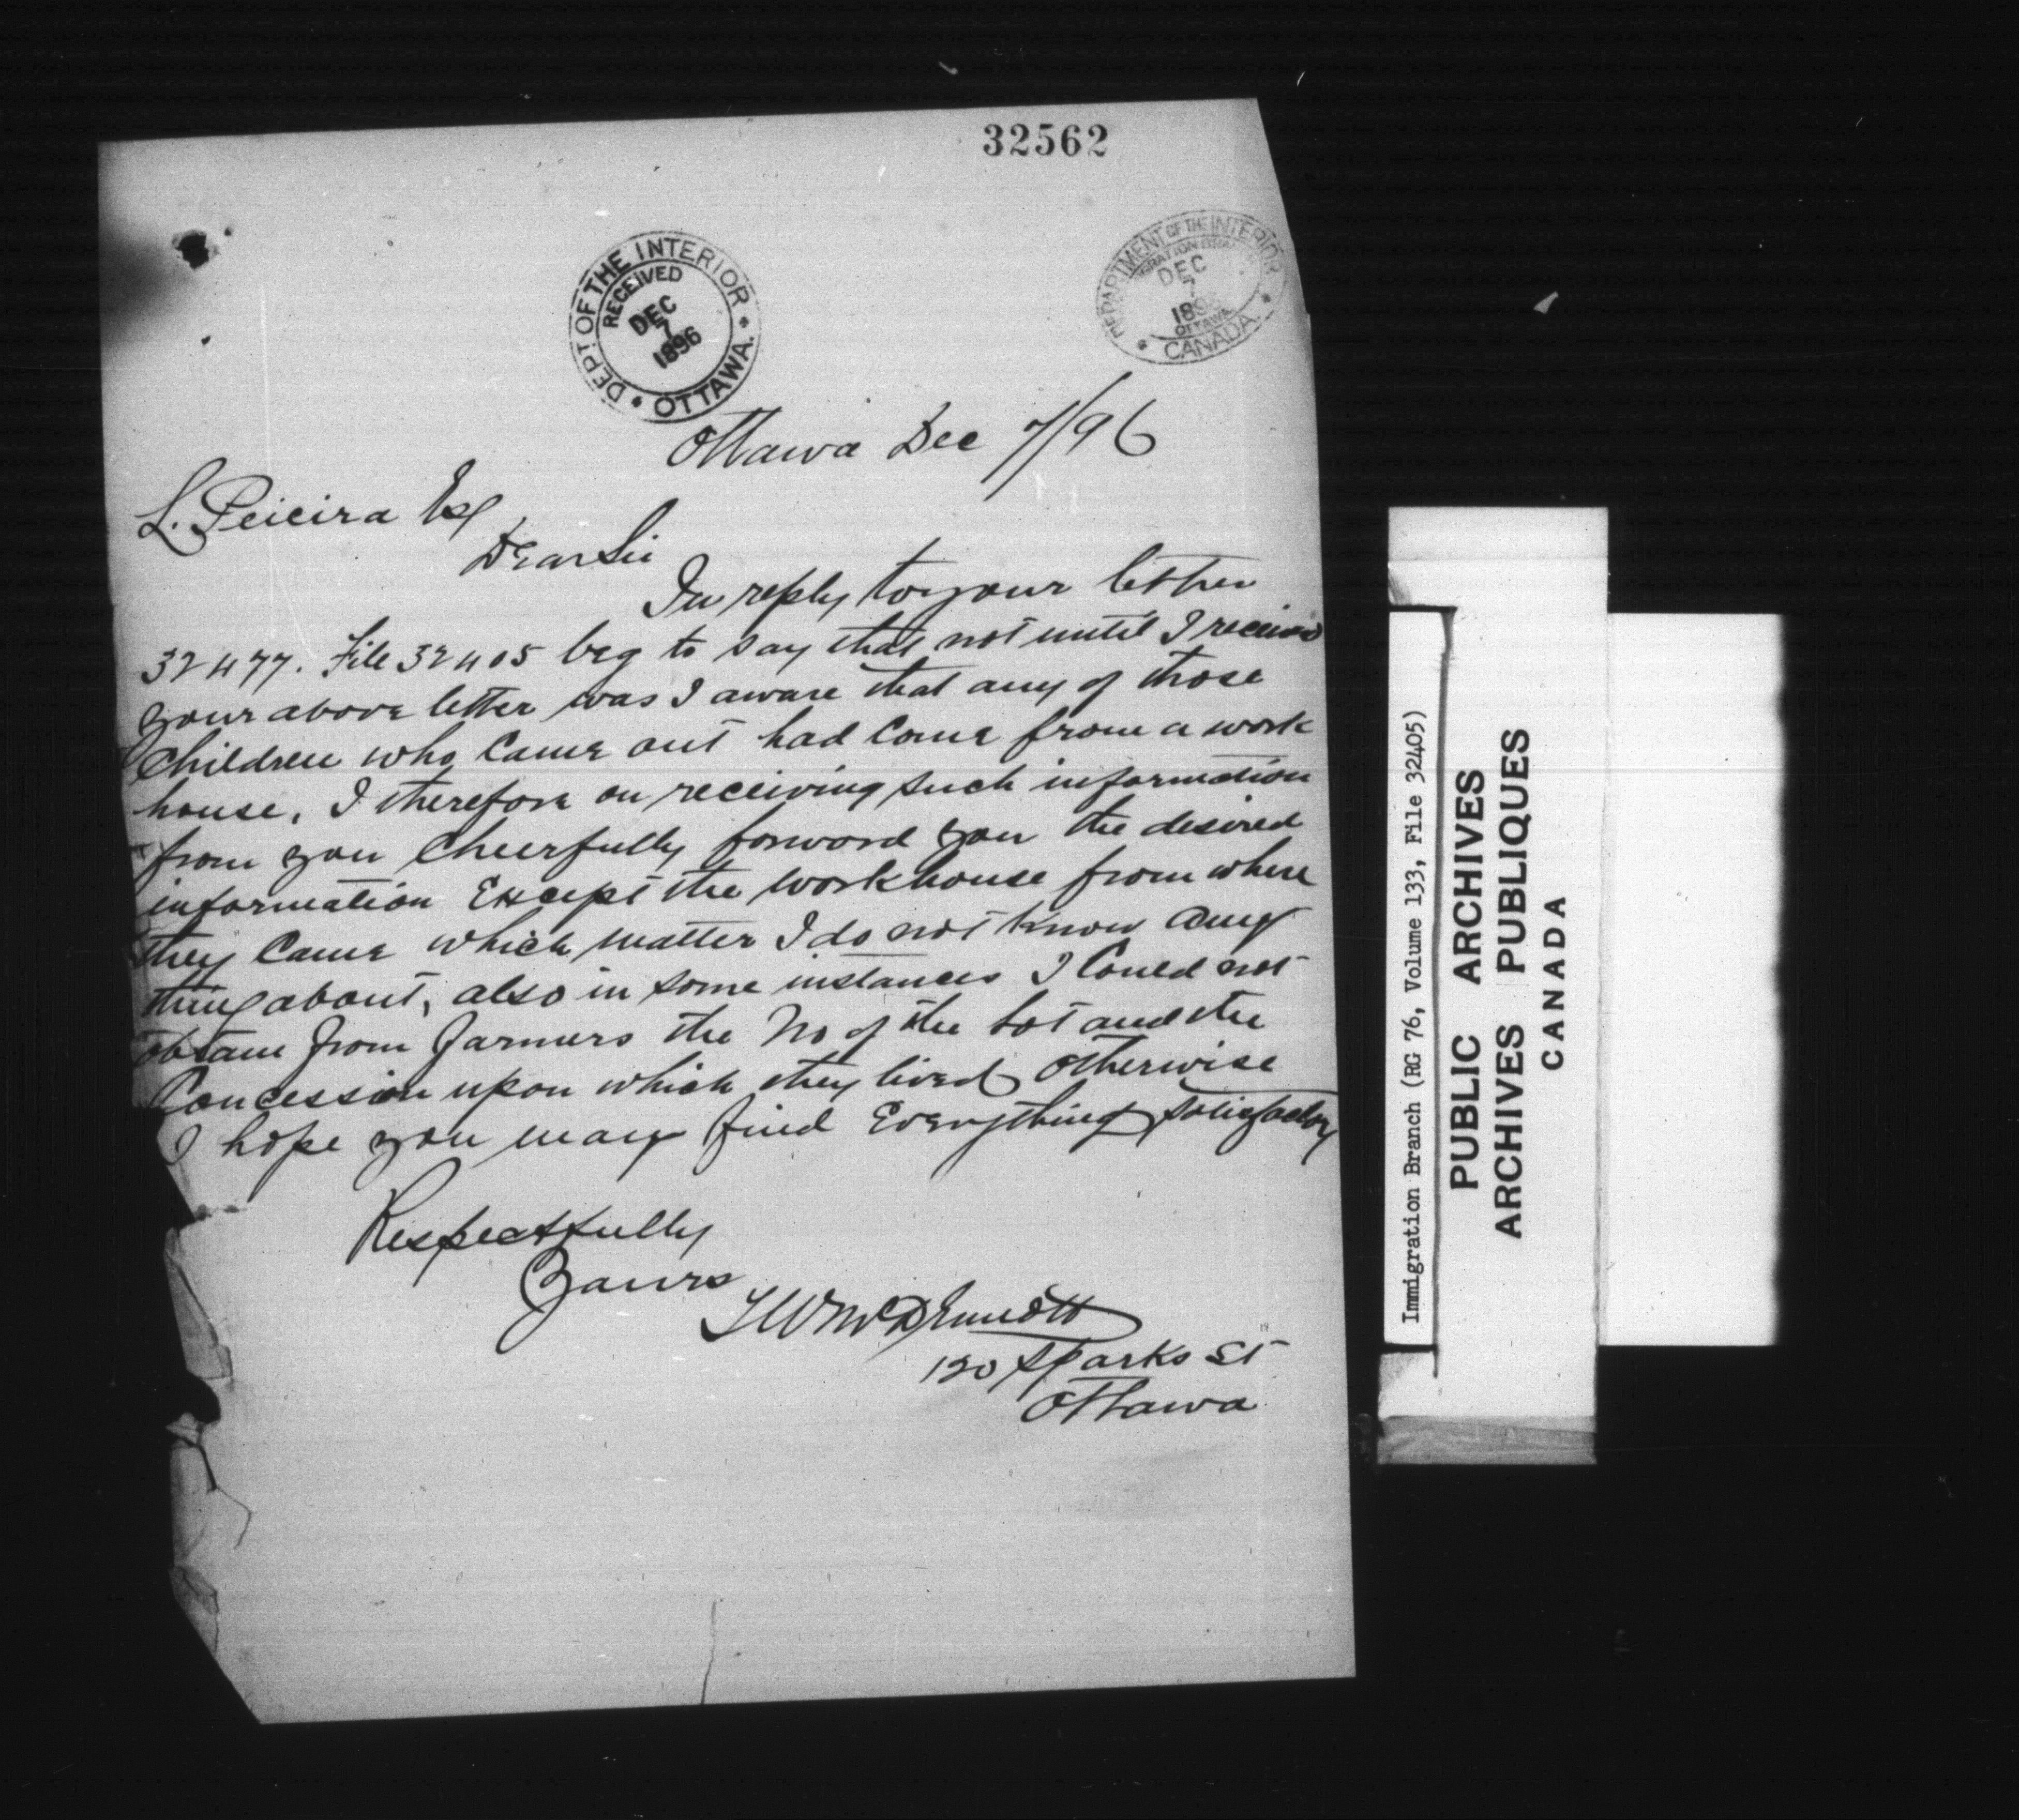 32562
DEPT. OF THE INTERIOR
RECEIVED
DEC
7
1896
OTTAWA.
DEPARTMENT OF THE INTERIOR
DEC
7
OTTAWA
CANADA.
Ottawa Dec 7/96
L. Pereira Esq
Dear Sir
In reply to your letter
32477. File 32405 beg to say that not until I received
your above letter was I aware that any of those
Children who Came out had Come from a work
house. I therefore on receiving such information
from you Cheerfully forward you the desired
information Except the workhouse from where
they Came which matter I do not Know any
thing about, also in some instances I Could not
obtain from farmers the No of the Lot and the
Concession upon which they lived Otherwise
I hope you may find Everything satisfactory
Respectfully
Yours
McDermott
120 Sparks St
Ottawa
Immigration Branch (RG 76, Volume 133, File 32405)
PUBLIC ARCHIVES
ARCHIVES PUBLIQUES
CANADA